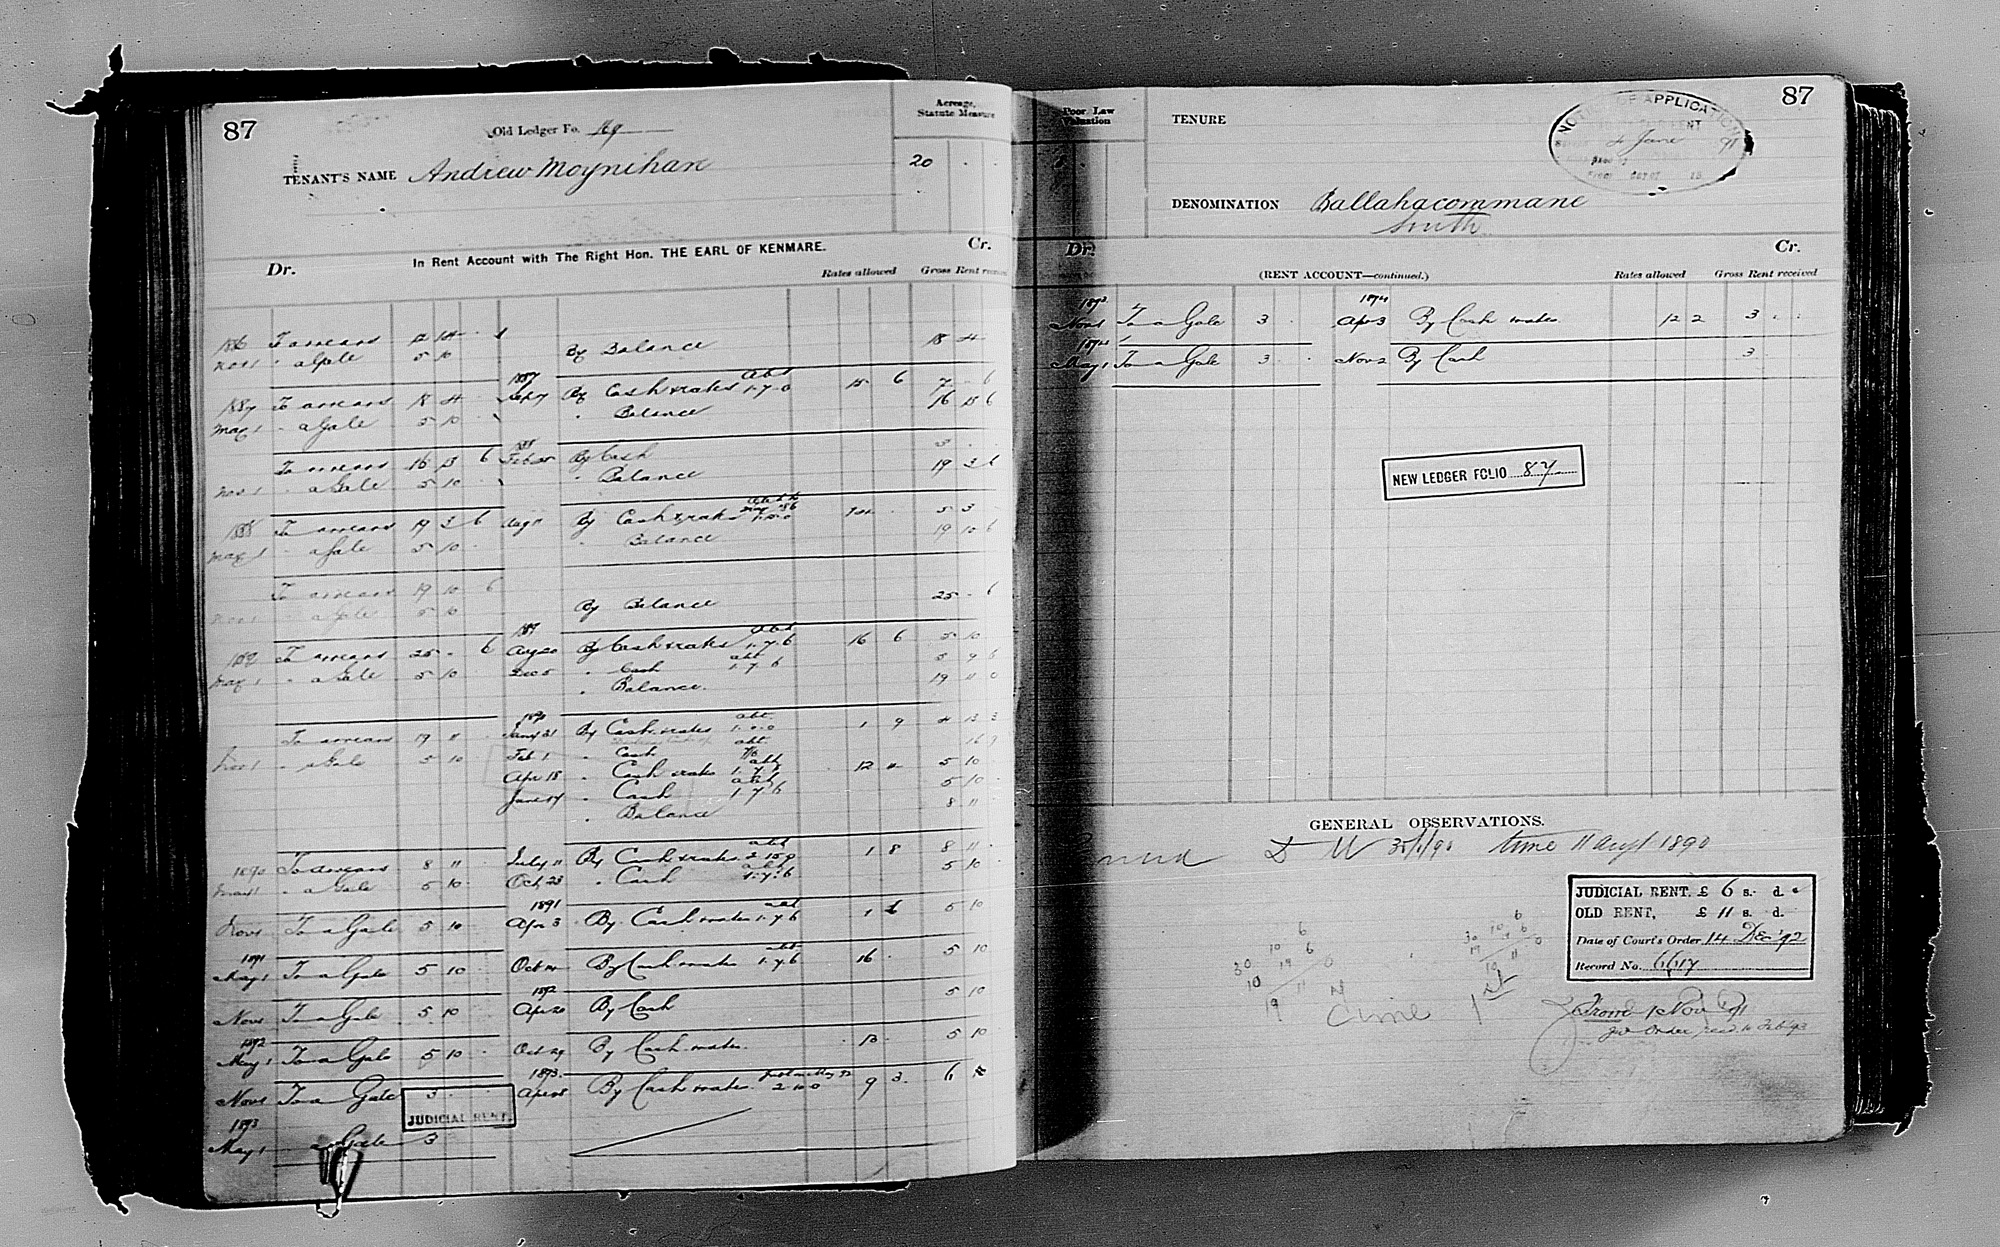 87
Old Ledger Fo. 169
TENANT'S NAME Andrew Moynihan
Acreage, Statute Measure
20 . .
In Rent Account with The Right Hon. THE EARL OF KENMARE.
Dr. Cr.
Rates allowed Gross Rent received
1886 To arrears 12 14 .
Nov 1 " a Gale 5 10 By Balance 18 4
1887 To arrears 18 4 . 1887 Sept 7 By Cash & rates abt 1.7.0 15 6 7 . 6
May 1 " a Gale 5 10 " Balance 16 13 6
To arrears 16 13 6 1888 Feb 25 By Cash 3 . .
Nov 1 " a Gale 5 10 " Balance 19 3 6
1888 To arrears 19 3 6 Aug 11 By Cash & rates 14 . 5 3
May 1 " a Gale 5 10 " Balance 19 10 6
To arrears 19 10 6
Nov 1 " a Gale 5 10 By Balance 25 . 6
1889 To arrears 25 . 6 1889 Aug 20 By Cash & rates abt 1.7.6 16 6 5 10
May 1 " a Gale 5 10 Dec 5 " Cash abt 1.7.6 5 9 6
" Balance. 19 11 0
To arrears 19 11 1890 Jany 31 By Cash & rates abt 1.0.0 1 9 4 13 3
Nov 1 " a Gale 5 10 Feb 1 " Cash abt 7/6 16 9
Apr 18 " Cash & rates abt 1.7.6 12 4 5 10
June 14 " Cash abt 1.7.6 5 10
" Balance 8 11
1890 To arrears 8 11 July 11 By Cash & rates abt 2.15.0 1 8 8 11
May 1 " a Gale 5 10 Oct 23 " Cash abt 1.7.6 5 10
Nov 1 To a Gale 5 10 1891 Apr 3 By Cash & rates abt 1.7.6 1 6 5 10
1891
May 1 To a Gale 5 10 Oct 14 By Cash & rates abt 1.7.6 16 . 5 10
Nov 1 To a Gale 5 10 1892 Apr 20 By Cash 5 10
1892
May 1 To a Gale 5 10 Oct 29 By Cash & rates. 13 . 5 10
Nov 1 To a Gale 3 . . 1893. Apr 28 By Cash & rates. 2.10.0 9 3 6
JUDICIAL RENT.
1893
May 1 " a Gale 3
87
Poor Law Valuation
TENURE
NOTICE OF APPLICATION
4 June 91
DENOMINATION Ballahacommane
South
Dr. Cr.
(RENT ACCOUNT—continued.) Rates allowed Gross Rent received
1893 Nov 1 To a Gale 3 . 1894 Apr 3 By Cash & rates. 12 2 3 . .
1894 May 1 To a Gale 3 . Nov 2 By Cash 3 .
NEW LEDGER FOLIO 87
GENERAL OBSERVATIONS.
time 11 Augt 1890
JUDICIAL RENT. £ 6 s. d.
OLD RENT, £ 11 s. d.
Date of Court's Order 14 Dec '92
Record No. 6617
From 1 Nov 91